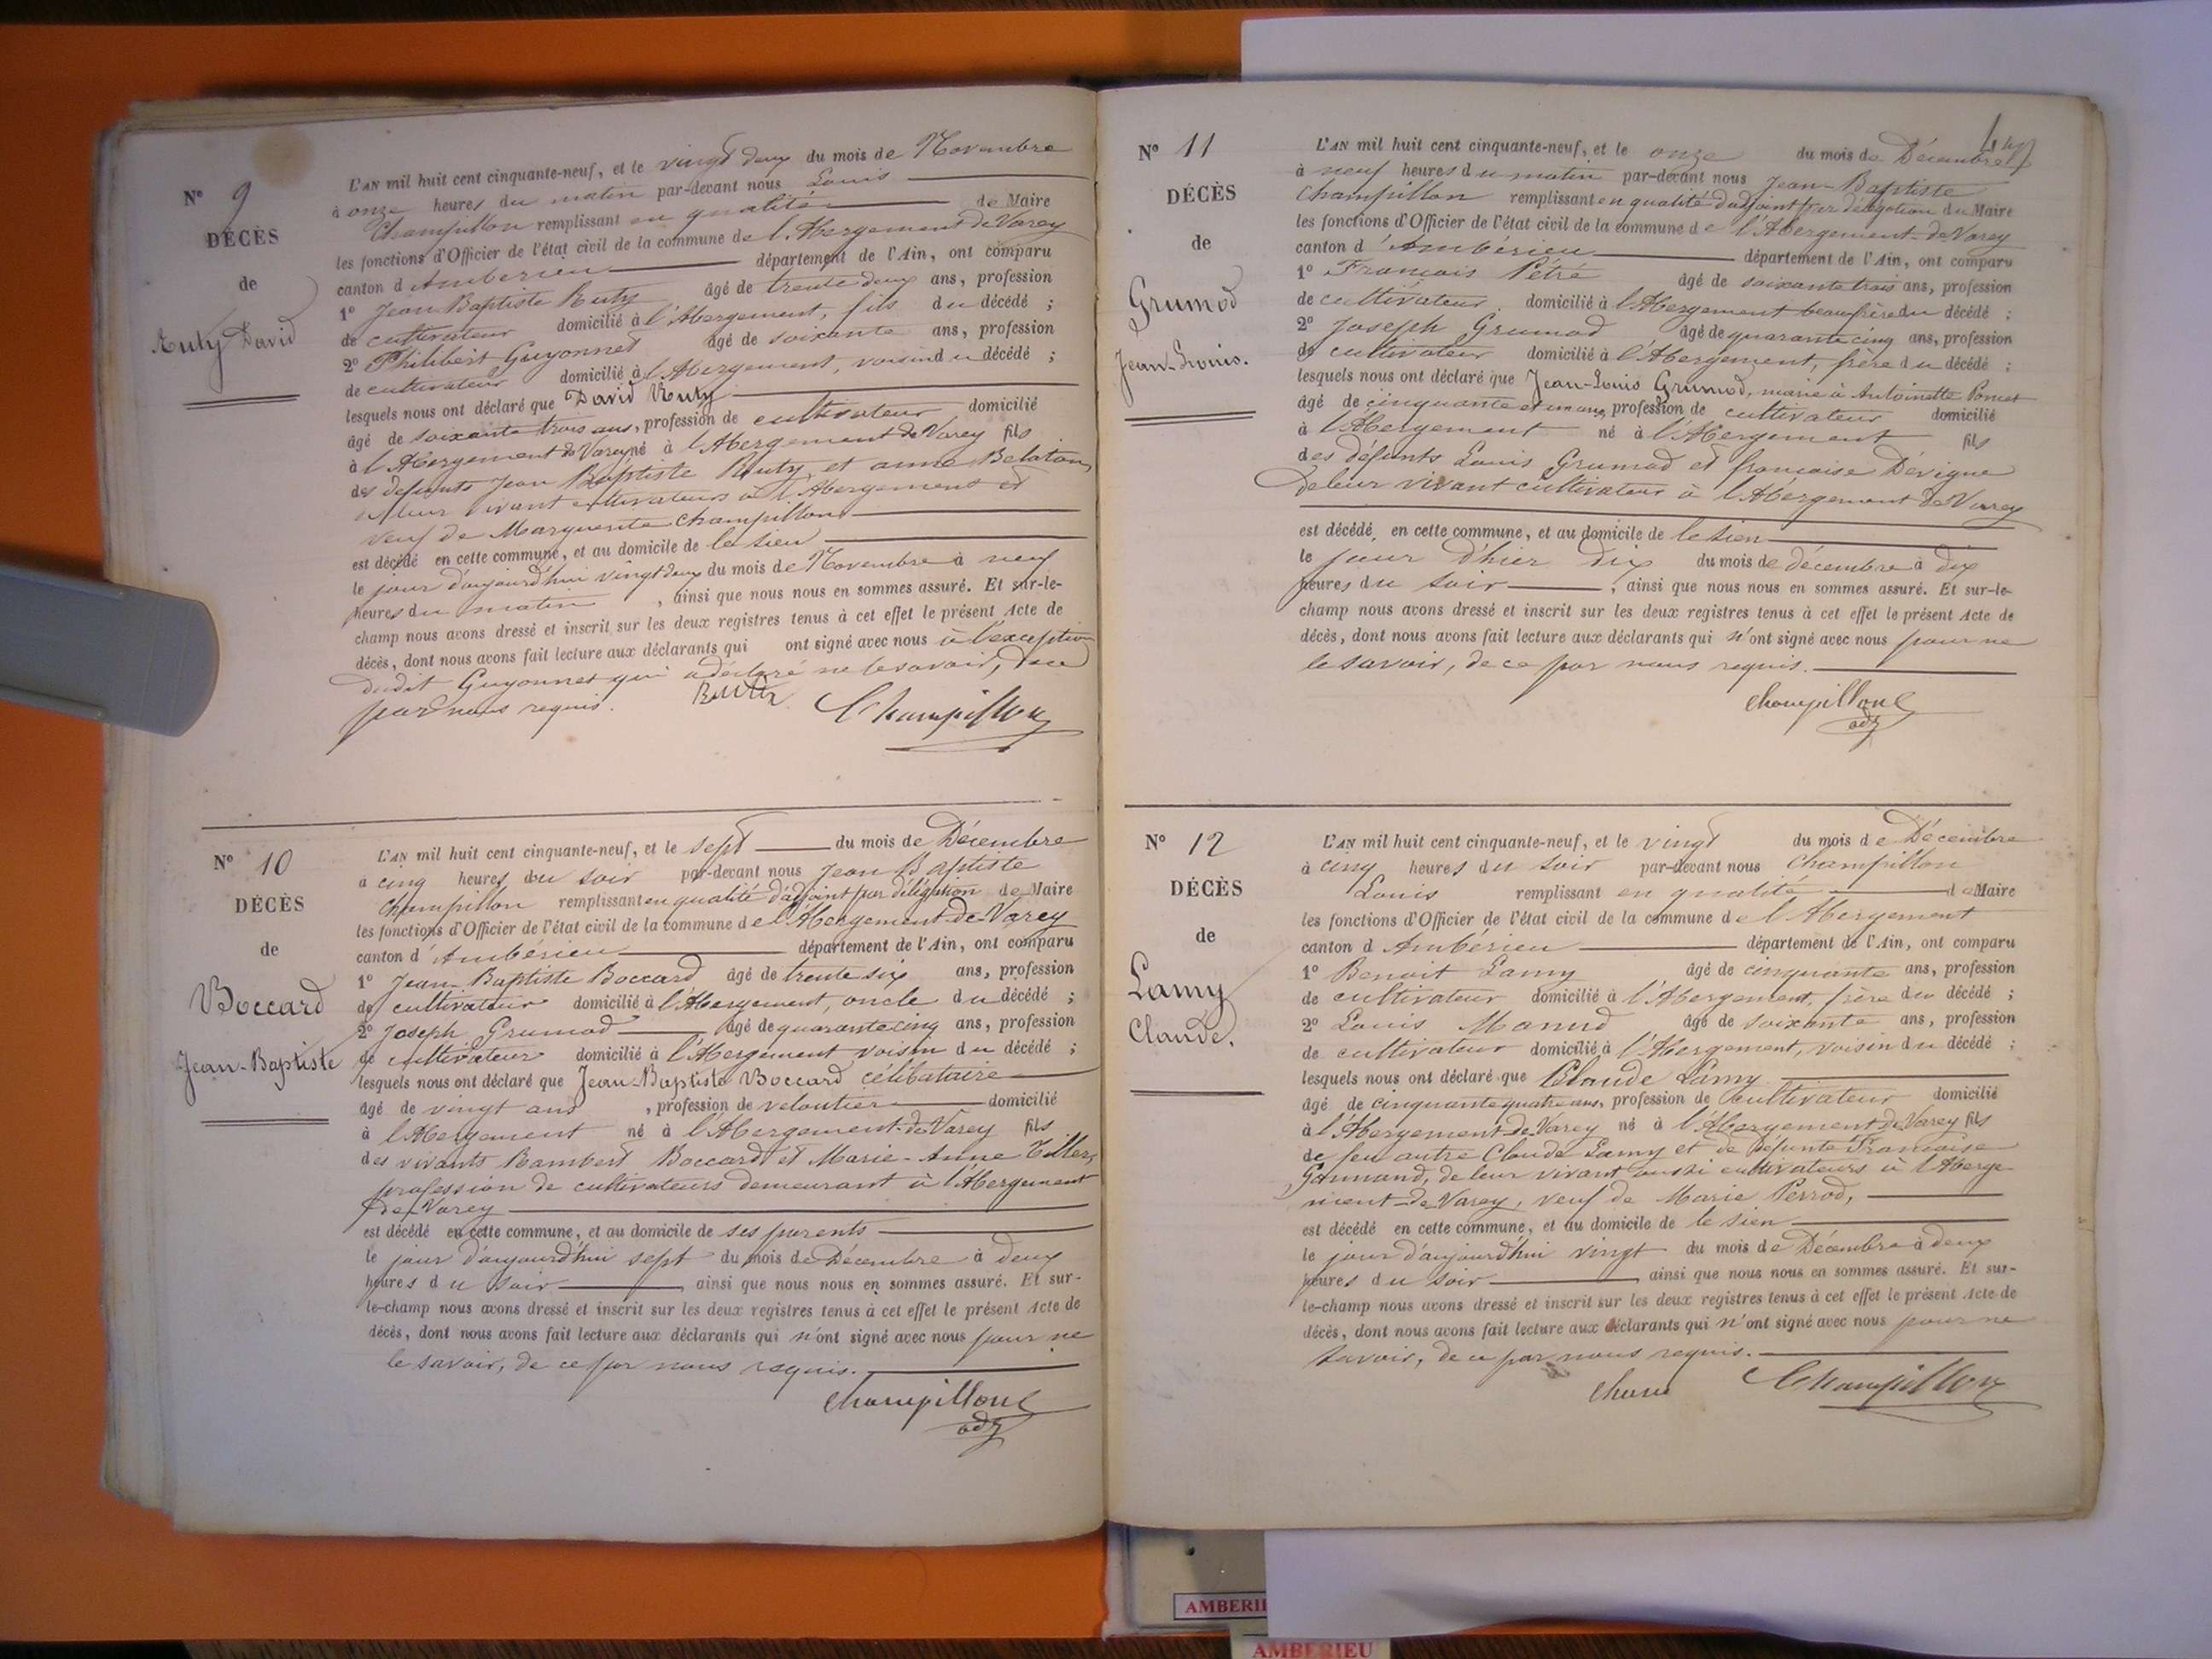 N° 9
DÉCÈS
de
Ruty David
L'AN mil huit cent cinquante-neuf, et le vingt deux du mois de Novembre
à onze heures du matin par-devant nous Louis
Champillon remplissant en qualité de Maire
les fonctions d'Officier de l'état civil de la commune de l'Abergement de Varey
canton d'Ambérieu département de l'Ain, ont comparu
1° Jean Baptiste Ruty âgé de trente deux ans, profession
de cultivateur domicilié à l'Abergement, fils du décédé ;
2° Philibert Guyonnet âgé de soixante ans, profession
de cultivateur domicilié à l'Abergement, voisin du décédé ;
lesquels nous ont déclaré que David Ruty
âgé de soixante trois ans, profession de cultivateur domicilié
à l'Abergement de Varey né à l'Abergement de Varey fils
des defunts Jean Baptiste Ruty et anne Belaton
de leur vivant cultivateurs à l'Abergement et
veuf de Marguerite Champillon
est décédé en cette commune, et au domicile de le sien
le jour d'aujourd'hui vingt deux du mois de Novembre à neuf
heures du matin, ainsi que nous nous en sommes assuré. Et sur-le-
champ nous avons dressé et inscrit sur les deux registres tenus à cet effet le présent Acte de
décès, dont nous avons fait lecture aux déclarants qui ont signé avec nous à l'exception
dudit Guyonnet qui a déclaré ne le savoir, de ce
par nous requis.
Champillon
N° 10
DÉCÈS
de
Boccard
Jean-Baptiste
L'AN mil huit cent cinquante-neuf, et le sept du mois de Décembre
à cinq heures du soir par-devant nous Jean Baptiste
Champillon remplissant en qualité d'adjoint par délégation de Maire
les fonctions d'Officier de l'état civil de la commune de l'Abergement-de-Varey
canton d'Ambérieu département de l'Ain, ont comparu
1° Jean-Baptiste Boccard âgé de trente six ans, profession
de cultivateur domicilié à l'Abergement, oncle du décédé ;
2° Joseph Grumod âgé de quarante cinq ans, profession
de cultivateur domicilié à l'Abergement voisin du décédé ;
lesquels nous ont déclaré que Jean-Baptiste Boccard célibataire
âgé de vingt ans, profession de veloutier domicilié
à l'Abergement né à l'Abergement-de-Varey fils
des vivants Rambert Boccard et Marie-Anne
profession de cultivateurs demeurant à l'Abergement
de Varey
est décédé en cette commune, et au domicile de ses parents
le jour d'aujourd'hui sept du mois de Décembre à deux
heures du soir, ainsi que nous nous en sommes assuré. Et sur-
le-champ nous avons dressé et inscrit sur les deux registres tenus à cet effet le présent Acte de
décès, dont nous avons fait lecture aux déclarants qui n'ont signé avec nous pour ne
le savoir, de ce par nous requis.
Champillon
adj
N° 11
DÉCÈS
de
Grumod
Jean-Louis.
L'AN mil huit cent cinquante-neuf, et le onze du mois de Décembre
à neuf heures du matin par-devant nous Jean-Baptiste
Champillon remplissant en qualité d'adjoint par délégation du Maire
les fonctions d'Officier de l'état civil de la commune de l'Abergement-de-Varey
canton d'Ambérieu département de l'Ain, ont comparu
1° François Pétré âgé de soixante trois ans, profession
de cultivateur domicilié à l'Abergement beaufrère du décédé ;
2° Joseph Grumod âgé de quarante cinq ans, profession
de cultivateur domicilié à l'Abergement, frère du décédé ;
lesquels nous ont déclaré que Jean-Louis Grumod, marié à Antoinette Poncet
âgé de cinquante et un ans, profession de cultivateur domicilié
à l'Abergement né à l'Abergement fils
des défunts Louis Grumod et françoise Dévigne
de leur vivant cultivateur à l'Abergement de Varey
est décédé, en cette commune, et au domicile de le sien
le jour d'hier dix du mois de décembre à dix
heures du soir, ainsi que nous nous en sommes assuré. Et sur-le-
champ nous avons dressé et inscrit sur les deux registres tenus à cet effet le présent Acte de
décès, dont nous avons fait lecture aux déclarants qui n'ont signé avec nous pour ne
le savoir, de ce par nous requis.
Champillon
adj
N° 12
DÉCÈS
de
Lamy
Claude.
L'AN mil huit cent cinquante-neuf, et le vingt du mois de Décembre
à cinq heures du soir par-devant nous Champillon
Louis remplissant en qualité de Maire
les fonctions d'Officier de l'état civil de la commune de l'Abergement
canton d'Ambérieu département de l'Ain, ont comparu
1° Benoit Lamy âgé de cinquante ans, profession
de cultivateur domicilié à l'Abergement, frère du décédé ;
2° Louis âgé de soixante ans, profession
de cultivateur domicilié à l'Abergement, voisin du décédé ;
lesquels nous ont déclaré que Claude Lamy
âgé de cinquante quatre ans, profession de cultivateur domicilié
à l'Abergement-de-Varey né à l'Abergement-de-Varey fils
de feu autre Claude Lamy et de défunte Françoise
de leur vivant aussi cultivateurs à l'Aberge
ment-de-Varey, veuf de Marie Perrod,
est décédé en cette commune, et au domicile de le sien
le jour d'aujourd'hui vingt du mois de Décembre à deux
heures du soir, ainsi que nous nous en sommes assuré. Et sur-
le-champ nous avons dressé et inscrit sur les deux registres tenus à cet effet le présent Acte de
décès, dont nous avons fait lecture aux déclarants qui n'ont signé avec nous pour ne
savoir, de ce par nous requis.
Champillon
AMBERIEU